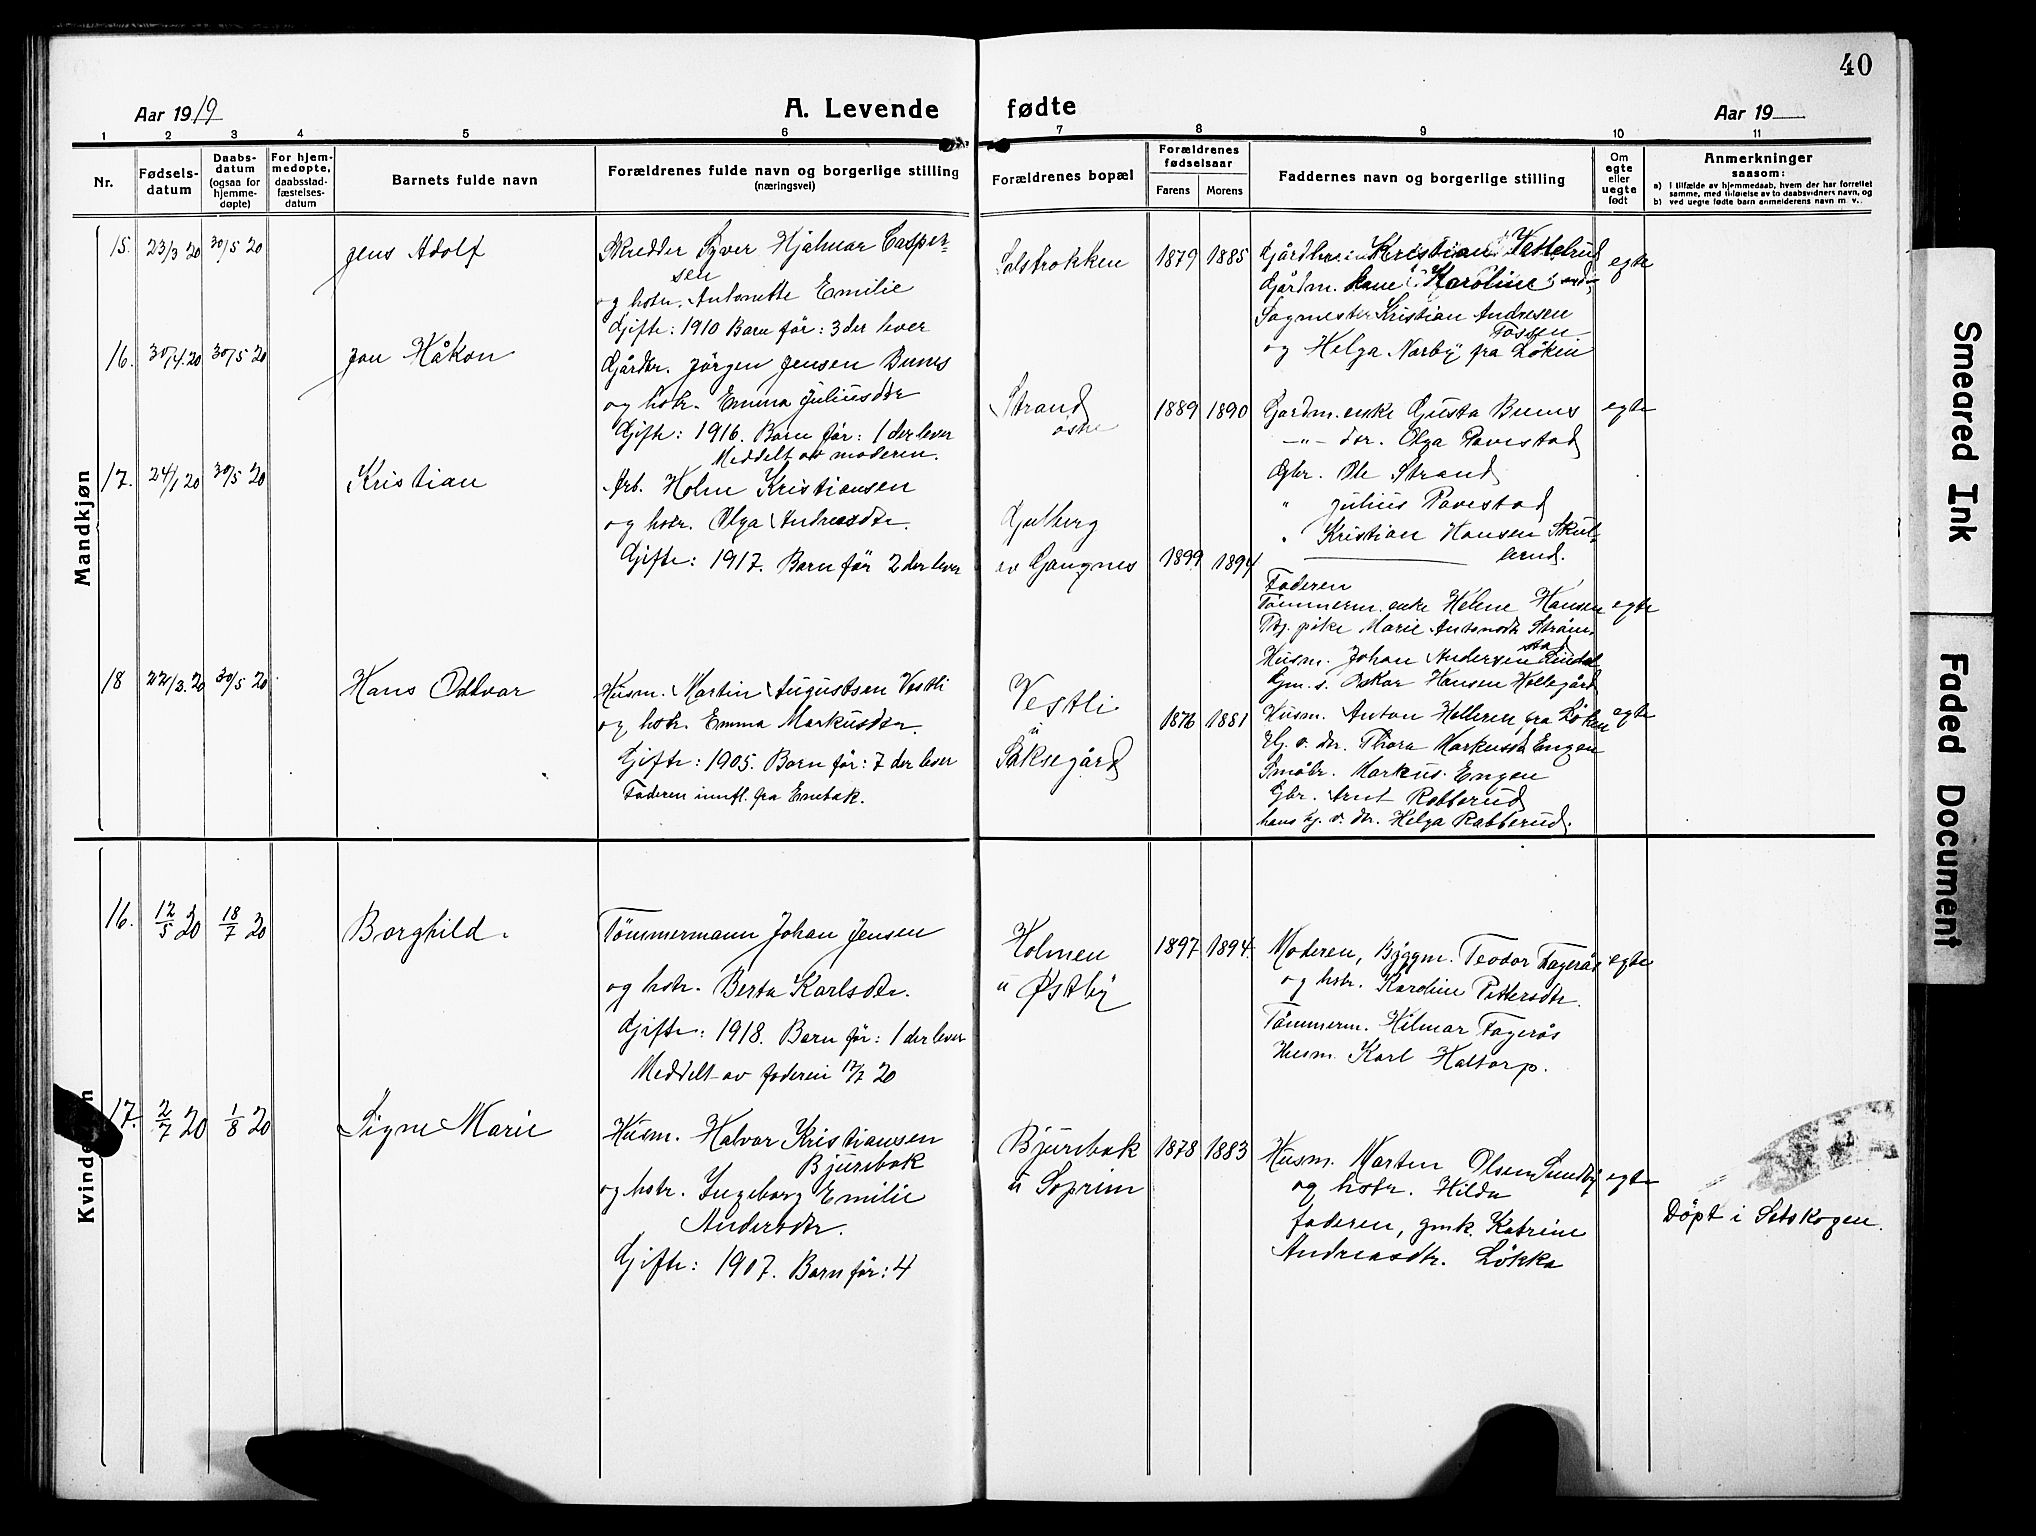 40
Aar 1919
A. Levende
fødte
Aar 19
1 2 3 4 5 6 7 8 9 10 11
Nr.
Fødsels-
datum
Daabs-
datum
(ogsaa for
hjemme-
døpte)
For hjem-
medøpte,
daabsstad-
fæstelses-
datum
Barnets fulde navn
Forældrenes fulde navn og borgerlige stilling
(næringsvei)
Forældrenes bopæl
Forældrenes
fødselsaar
Farens
Morens
Faddernes navn og borgerlige stilling
Om
egte
eller
uegte
født
Anmerkninger
saasom:
a) i tilfælde av hjemmedaab, hvem der har forrettet
samme, med tilføielse av to daabsvidners navn, og
b) ved uegte fødte barn anmelderens navn m. v.
Mandkjøn
15. 23/3 20 30/5 20
Jens Adolf
Skredder Syver Hjalmar Casper-
sen
og hstr. Antonette Emilie
Gifte: 1910 Barn før: 3 der lever
1879 1885
Kristian
Karoline
Sagmester Kristian Andresen
og Helga Narby fra Løken
egte
16. 30/4 20 30/5 20
Jon Håkon
Gårdbr. Jörgen Jensen Bunes
og hstr. Emma Juliusdtr
Gifte: 1916. Barn før: 1 der lever
Meddelt av moderen.
Strand
östre
1889 1890
Gårdm. enke Gusta Bunes
-"- dtr. Olga Tovestad
Gbr. Ole Strand
" Julius Tovestad
" Kristian Hansen Skul-
lerud.
egte
17. 24/1 20 30/5 20
Kristian
Arb. Holm Kristiansen
og hstr. Olga Andreasdtr.
Gifte: 1917. Barn før 2 der lever
Gulberg
av Gangnes
1899 1894
Faderen
Tömmerm. enke Helene Hansen
Tbj. pike Marie Antonsdtr Ström-
stad
Husm. Johan Andersen Lindal
Gm. s. Oskar Hansen Kollegård
egte
18 22/3. 20 30/5 20
Hans Oddvar
Husm. Martin Augustsen Vestli
og hstr. Emma Markusdtr.
Gifte: 1905. Barn før: 7 der lever
Faderen innfl. fra Enebak.
Vestli
u
Saksegård
1876 1881
Husm. Anton Holleren fra Löken
Hj. v. dtr. Thora Markusdt Engen
Småbr. Markus Engen
Gbr. Arnt Rabberud
hans hj. v. dtr. Helga Rabberud.
egte
Kvindekjøn
16. 12/5 20 18/7 20
Borghild.
Tömmermann Johan Jensen
og hstr. Berta Karlsdtr.
Gifte: 1918. Barn før: 1 der lever
Meddelt av faderen 17/7 20
Holmen
u Østby
1897 1894.
Moderen, Byggm. Teodor Fagerås
og hstr. Karoline Pettersdtr.
Tömmerm. Hilmar Fagerås
Husm. Karl Haltorp.
egte
17. 2/7 20 1/8 20
Signe Marie
Husm. Halvor Kristiansen
Bjurebak
og hstr. Ingeborg Emilie
Andersdtr.
Gifte: 1907. Barn før: 4
Bjurebak
u Soprim
1878 1883
Husm. Marten Olsen Sundby
og hstr. Hilda
faderen, gmk. Katrine
Andreasdtr. Løkka
egte
Döpt i Setskogen.
Smeared Ink
Faded Document